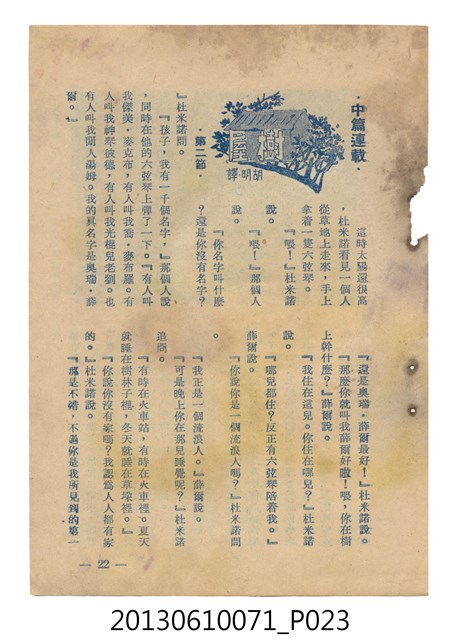 ·中篇連載·
樹屋
胡明·譯
·第二節·
這時太陽還很高
，杜米諾看見一個人
從草地上走來，手上
拿着一隻六弦琴。
『喂！』杜米諾
說。
『喂！』那個人
說。
『你名字叫什麼
？還是你沒有名字？
』杜米諾問。
『孩子，我有一千個名字，』那個人說
，同時在他的六弦琴上彈了一下。『有人叫
我傑美·麥克布，有人叫我喬·麥布羅。有
人叫我神琴彼德，有人叫我光棍兒老劉。也
有人叫我閒人湯姆。我的真名字是奧瑞·薛
爾。』
『還是奧瑞·薛爾最好！』杜米諾說。
『那麼你就叫我薛爾好啦！喂，你在樹
上幹什麼？』薛爾說。
『我住在這兒。你住在哪兒？』杜米諾
說。
『哪兒都住？反正有六弦琴陪着我。』
薛爾說。
『你說你是一個流浪人嗎？』杜米諾問
。
『我正是一個流浪人。』薛爾說。
『可是晚上你在那兒睡覺呢？』杜米諾
追問。
『有時在火車站，有時在火車裡。夏天
就睡在樹林子裡，冬天就睡在草堆裡。』
『你說你沒有家嗎？我認爲人人都有家
的。』杜米諾說。
『那是不錯，不過你是我所見到的第一
— 22 —
20130610071_P023